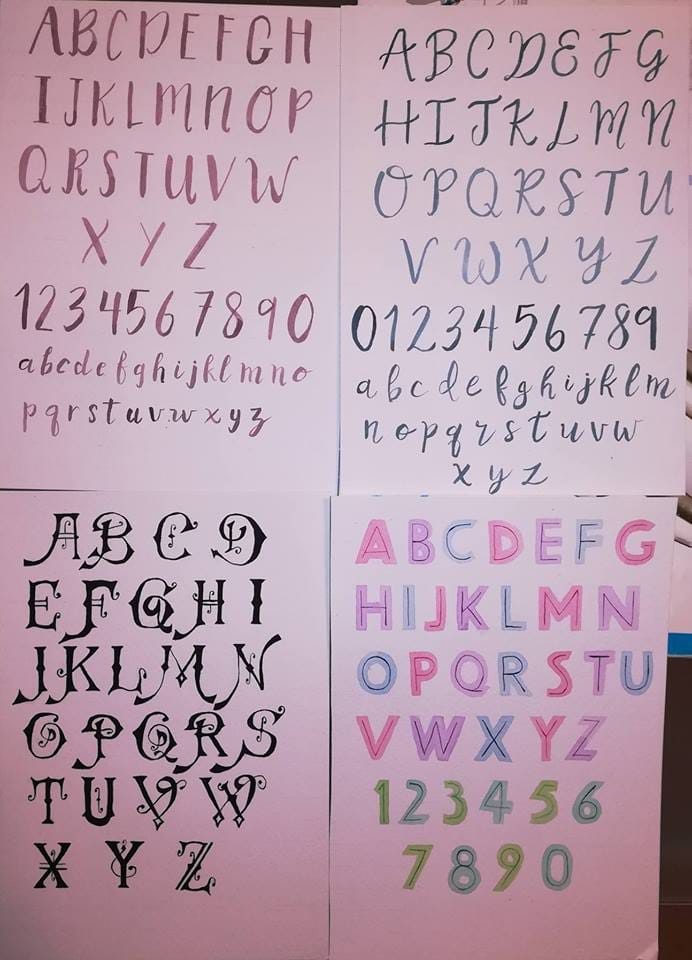 ABCDEFGH
IJKLMNOP
QRSTUVW
XYZ
1234567890
abcdefghijklmno
pqrstuvwxyz
ABCDEFG
HIJKLMN
OPQRSTU
VWXYZ
0123456789
abcdefghijklm
nopqrstuvw
xyz
ABCD
EFGHI
JKLMN
OPQRS
TUVW
XYZ
ABCDEFG
HIJKLMN
OPQRSTU
VWXYZ
123456
7890